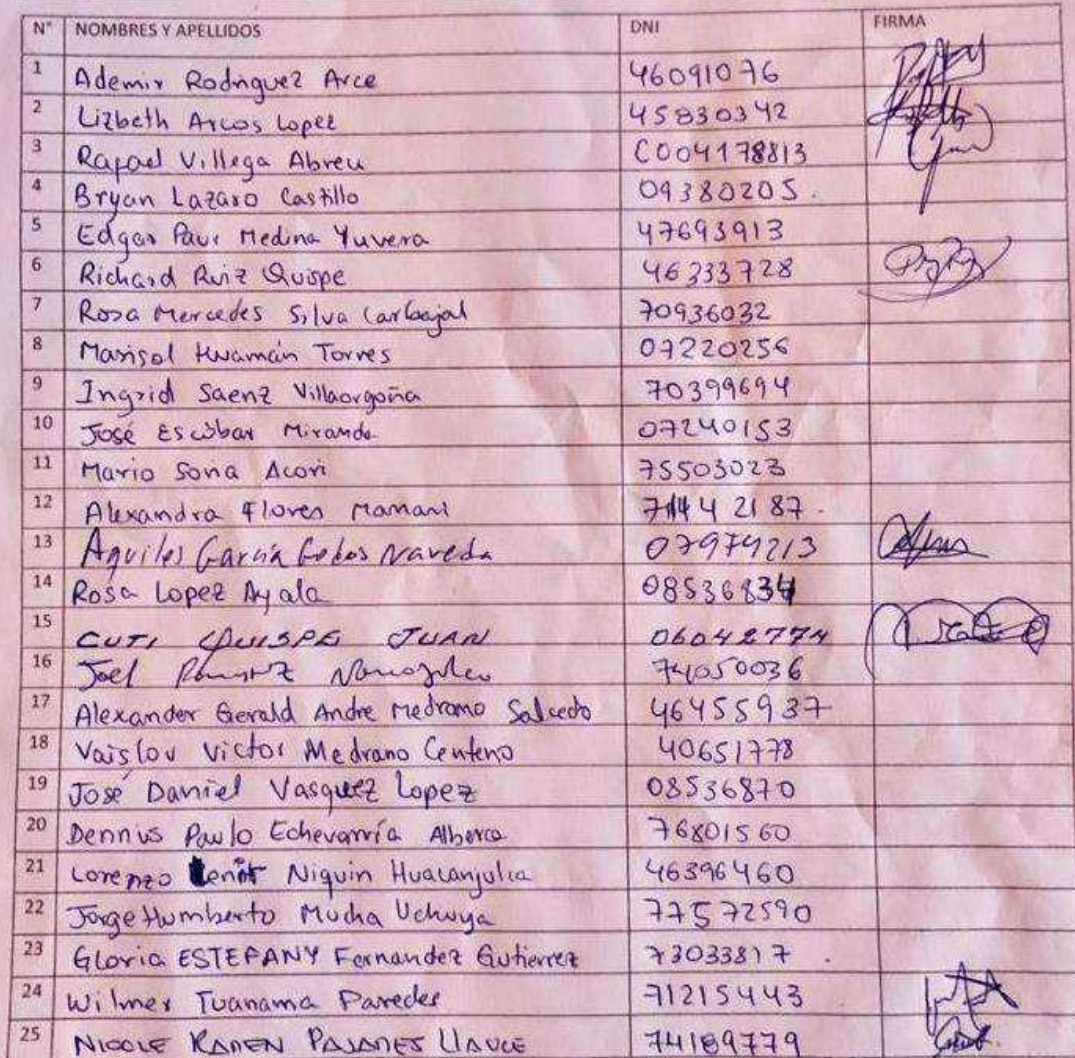 N° NOMBRES Y APELLIDOS DNI FIRMA
1 Ademir Rodriguez Arce 46091076
2 Lizbeth Arcos Lopez 45830342
3 Rafael Villega Abreu C004178813
4 Bryan Lazaro Castillo 09380205.
5 Edgar Paul Medina Yuvera 47693913
6 Richard Ruiz Quispe 46333728
7 Rosa Mercedes Silva Carbajal 70936032
8 Marisol Huamán Torres 07220256
9 Ingrid Saenz 70399694
10 José Escobar Miranda 07240153
11 Mario Soria Acori 75503023
12 Alexandra Flores Mamani 71442187.
13 Aquiles García Naveda 07974213
14 Rosa Lopez Ayala 08536834
15 CUTI QUISPE JUAN 06042774
16 Joel Ramirez 74050036
17 Alexander Gerald Andre Medrano Salcedo 46455937
18 Vaislov Victor Medrano Centeno 40651778
19 José Daniel Vasquez Lopez 08536870
20 Dennus Paulo Echevarría Alberca 76801560
21 Lorenzo Niquin 46396460
22 Jorge Humberto Mucha Uchuya 77572590
23 Gloria ESTEFANY Fernandez Gutierrez 73033817.
24 Wilmer Tuanama Paredes 71215443
25 NICOLE KAREN 74189779